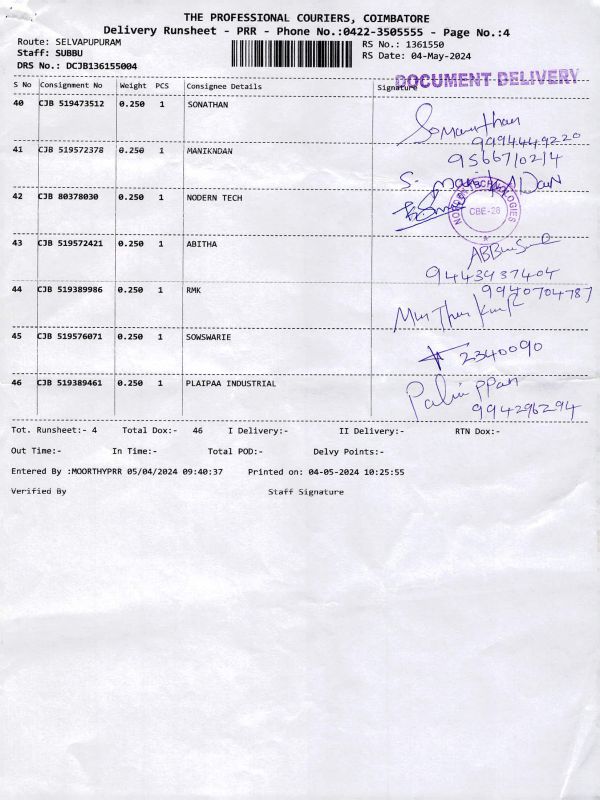 THE PROFESSIONAL COURIERS, COIMBATORE
Delivery Runsheet - PRR - Phone No.:0422-3505555 - Page No.:4
Route: SELVAPUPURAM
RS No.: 1361550
Staff: SUBBU
RS Date: 04-May-2024
DRS No.: DCJB136155004
DOCUMENT DELIVERY
S No Consignment No Weight PCS Consignee Details Signature
40 CJB 519473512 0.250 1 SONATHAN
9994449220
41 CJB 519572378 0.250 1 MANIKNDAN
9566710214
42 CJB 80378030 0.250 1 NODERN TECH
CBE-26
43 CJB 519572421 0.250 1 ABITHA
9443937404
44 CJB 519389986 0.250 1 RMK
9940704787
45 CJB 519576071 0.250 1 SOWSWARIE
2340090
46 CJB 519389461 0.250 1 PLAIPAA INDUSTRIAL
994296294
Tot. Runsheet:- 4 Total Dox:- 46 I Delivery:- II Delivery:- RTN Dox:-
Out Time:- In Time:- Total POD:- Delvy Points:-
Entered By :MOORTHYPRR 05/04/2024 09:40:37 Printed on: 04-05-2024 10:25:55
Verified By Staff Signature